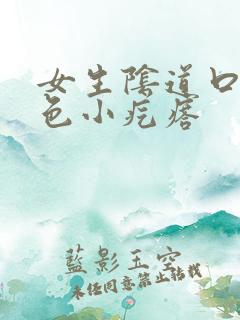 女生陰道口
色小疙瘩
藍影玉空
未经同意禁止转载